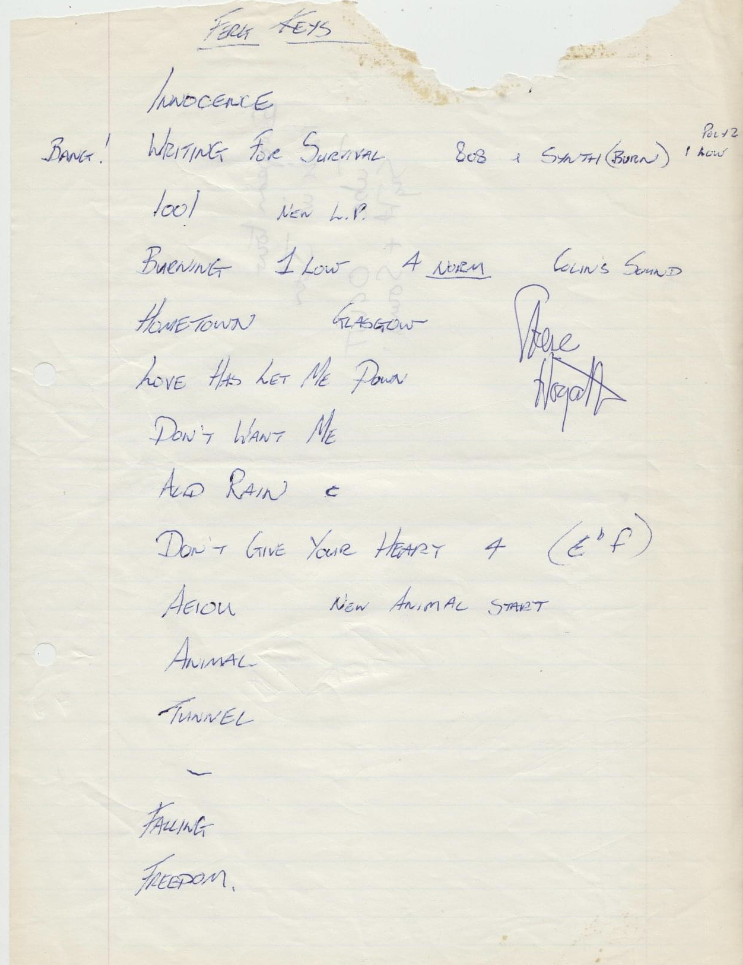 FERG KEYS
INNOCENCE
BANG! WRITING FOR SURVIVAL 808 & SYNTH (BURN) 1 LOW POLY 2
100! NEW L.P.
BURNING 1 LOW 4 NORM COLIN'S SOUND
HOMETOWN GLASGOW
Steve
Hogarth
LOVE HAS LET ME DOWN
DON'T WANT ME
ACID RAIN c
DON'T GIVE YOUR HEART 4 (E♭ F)
AEIOU NEW ANIMAL START
ANIMAL
TUNNEL
~
FALLING
FREEDOM.